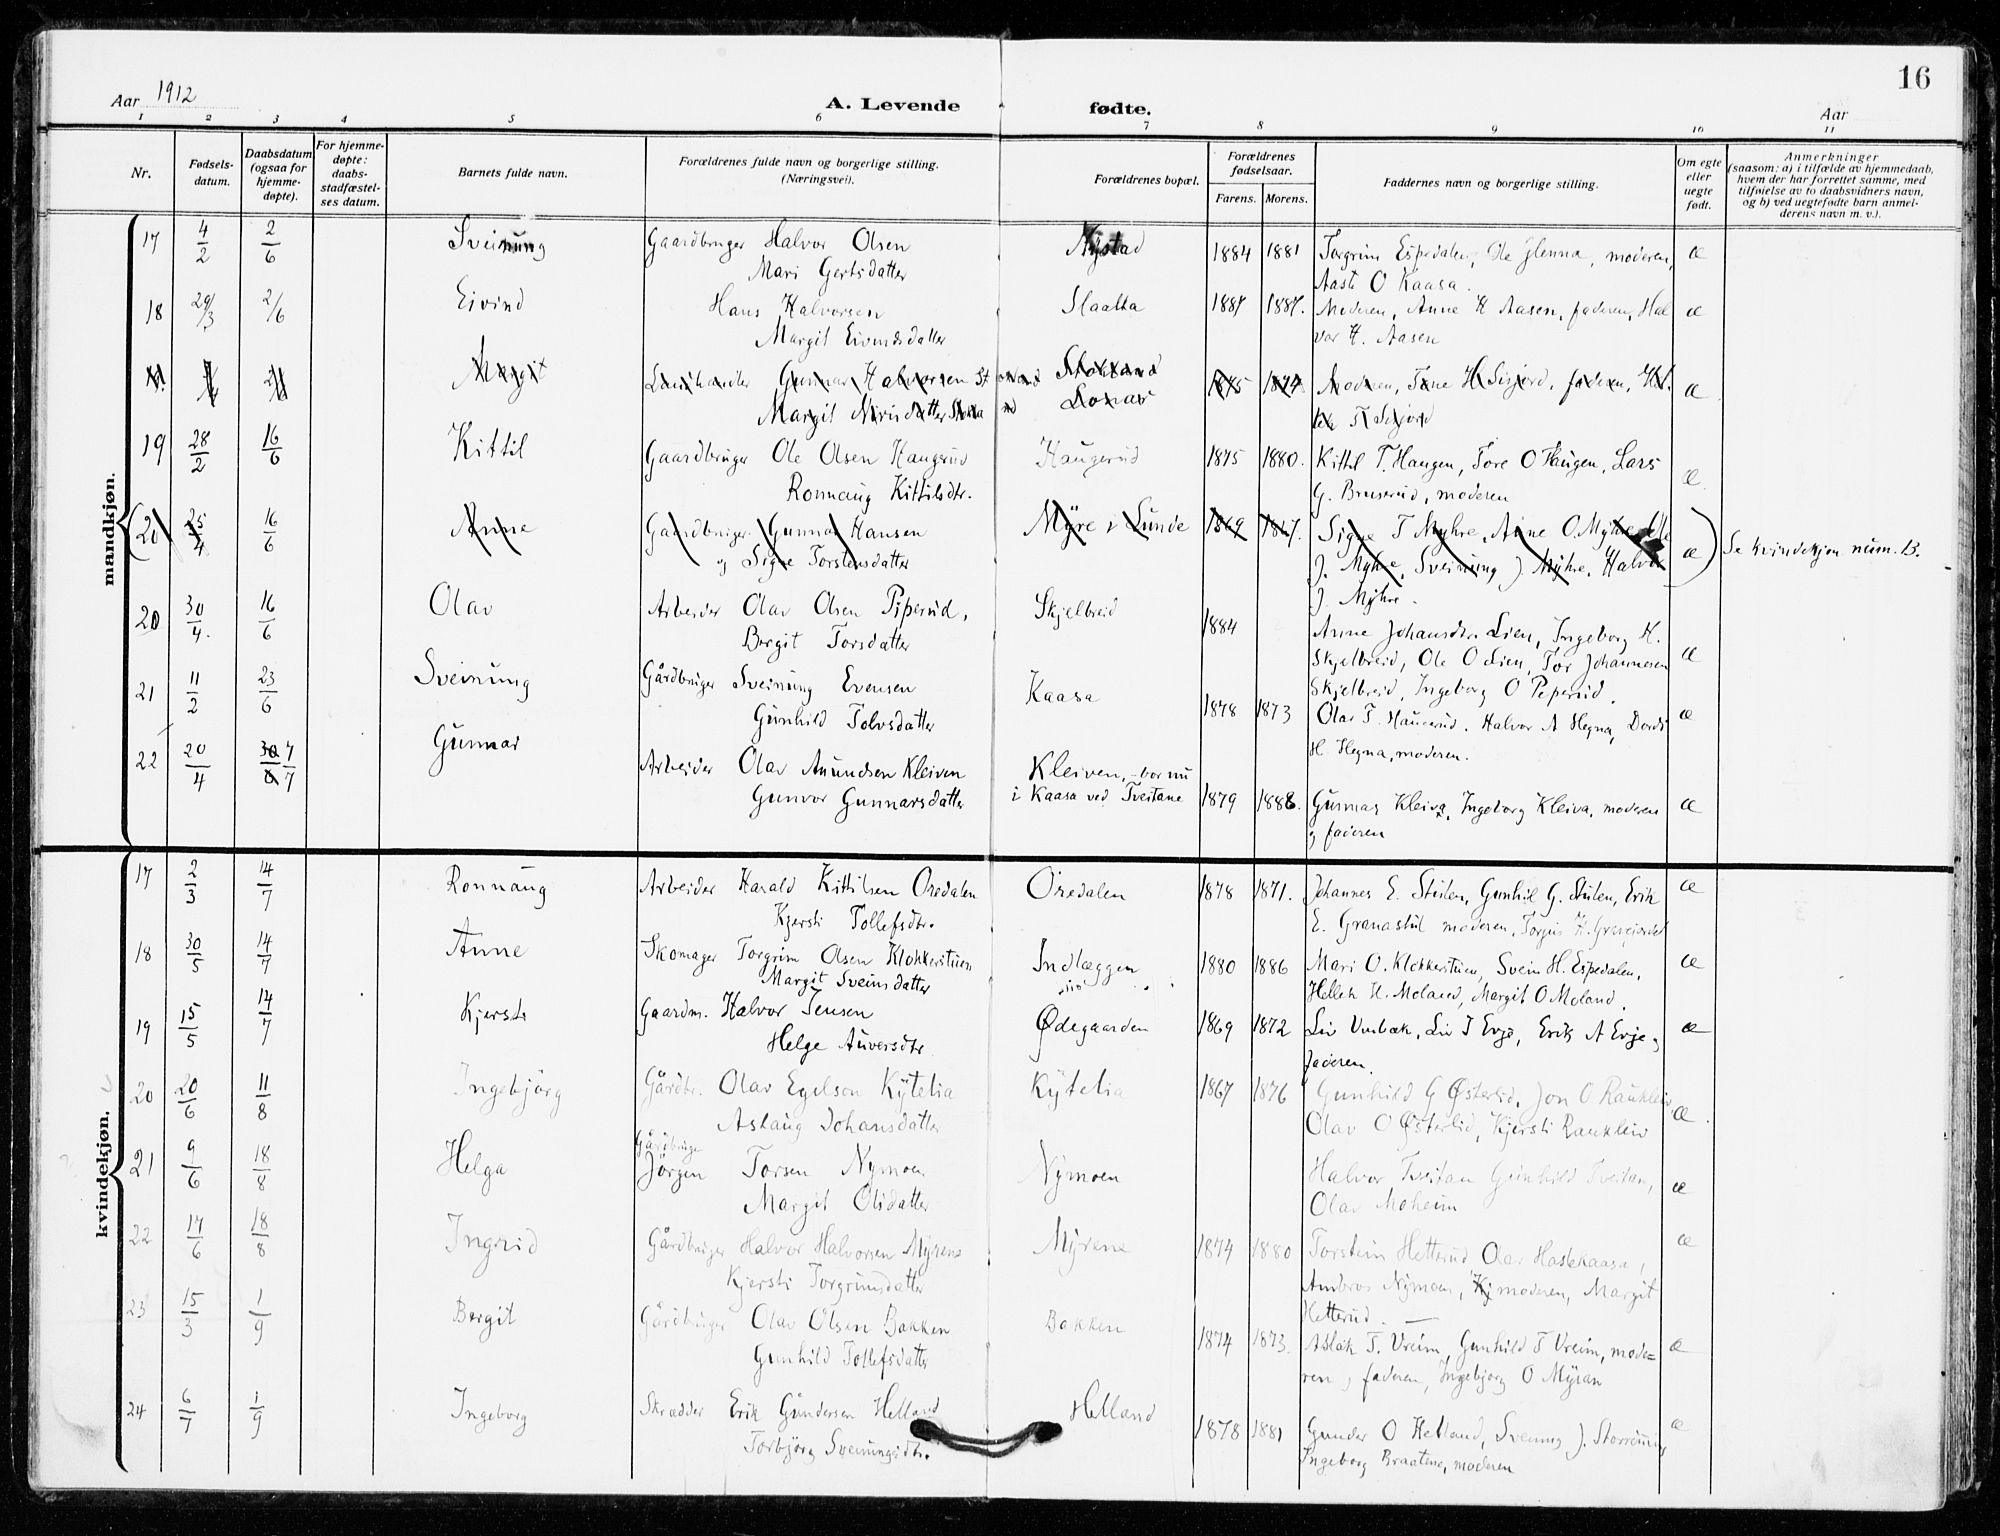 16
Aar 1912
A. Levende fødte.
Aar
1 2 3 4 5 6 7 8 9 10 11
Nr.
Fødsels-
datum.
Daabsdatum
(ogsaa for
hjemme-
døpte).
For hjemme-
døpte:
daabs-
stadfæstel-
ses datum.
Barnets fulde navn.
Forældrenes fulde navn og borgerlige stilling.
(Næringsvei).
Forældrenes bopæl.
Forældrenes
fødselsaar.
Farens. Morens.
Faddernes navn og borgerlige stilling.
Om egte
eller
uegte
født.
Anmerkninger
(saasom: a) i tilfælde av hjemmedaab,
hvem der har forrettet samme, med
tilføielse av to daabsvidners navn,
og b) ved uegtefødte barn anmel-
derens navn m. v.).
mandkjøn.
17 4/2 2/6 Sveinung Gaardbruger Halvor Olsen Nystad 1884 1881 Torgrim Espedalen, Ole Glenna, moderen, æ
Mari Gertsdatter Aaste O Kaasa.
18 29/3 2/6 Eivind Hans Halvorsen Slaatta 1887 1887. Moderen, Anne H Aasen, faderen, Hal æ
Margit Eivindsdatter vor H. Aasen
Margit Landhandler Gunnar Halvorsen Stokland 1875 1874 Moderen, faderen, æ
Margit
19 28/2 16/6 Kittil Gaardbruger Ole Olsen Haugerud Haugerud 1875 1880. Kittil T. Haugen, Tore O Haugen, Lars æ
Ronnaug Kittilsdtr. G. Bruserud, moderen
(20 25/4 16/6 Anne Gaardbruger Gunnar Hansen Myre i Lunde 1869 1867. Signe T Myhre, Anne O Myhre, Ole æ) Se kvindekjøn num. 13.
og Signe Torstensdatter J. Myhre, Sveinung J. Myhre, Halvor
J. Myhre.
20 30/4. 16/6 Olav Arbeider Olav Olsen Piperud, Skjelbreid 1884 Anne Johansdtr. Lien, Ingeborg H. æ
Bergit Torsdatter Skjelbreid, Ole O Lien, Tor Johannesen
Skjelbreid, Ingeborg O Peperud.
21 11/2 23/6 Sveinung Gårdbruger Sveinung Evensen Kaasa 1878 1873 Olav T. Haugerud. Halvor A Hegna, Dordi æ
Gunhild Tolvsdatter H. Hegna, moderen.
22 20/4 30/6 7/7 Gunnar Arbeider Olav Amundsen Kleiven Kleiven, - bor nu
Gunvor Gunnarsdatter i Kaasa ved Tveitane 1879 1888. Gunnar Kleiva, Ingeborg Kleiva, moderen æ
og faderen
kvindekjøn.
17 2/3 14/7 Ronnaug Arbeider Harald Kittilsen Oredalen Oredalen 1878 1871. Johannes E. Stulen, Gunhil G. Stulen, Erik æ
Kjersti Tollefsdtr. E. Granastul moderen, Torgus H.
18 30/5 14/7 Anne Skomager Torgrim Olsen Klokkerstuen Indlæggen 1880 1886 Mari O. Klokkerstuen, Svein H. Espedalen, æ
Margit Sveinsdatter Hellek H. Moland, Margit O Moland.
19 15/5 14/7 Kjersti Gaardm. Halvor Jensen Ødegaarden 1869 1872 Liv Vinbæk, Liv J Evje, Erik A Evje og æ
Helge Anversdtr. faderen.
20 20/6 11/8 Ingebjörg Gårdbr. Olav Egilson Kytelia Kytelia 1867 1876 Gunhild G Østerlid, Jon O Raukleiv æ.
Aslaug Johansdatter Olav O Østerlid, Kjersti Raukleiv
21 9/6 18/8 Helga Gårdbruge
Jörgen Torsen Nymoen Nymoen Halvor Tveitan Gunhild Tveitan, æ
Margit Olsdatter Olav Moheim
22 17/6 18/8 Ingrid Gårdbruger Halvor Halvorsen Myrene Myrene 1874 1880 Torstein Hetterud Olav Haslekaasa, æ
Kjersti Torgrimsdatter Ambros Nymoen, moderen, Margit
Hetterud.
23 15/3 1/9 Bergit Gårdbruger Olav Olsen Bakken Bakken 1874 1873. Aslak T. Vreim, Gunhild T Vreim, mode= æ
Gunhild Tollefsdatter ren, faderen, Ingebjorg O Myran
24 6/7 1/9 Ingeborg Skrædder Erik Gundersen Helland Helland 1878 1881 Gunder O Helland, Sveinung J. æ
Torbjörg Sveinungsdtr. Ingeborg Braatene, moderen